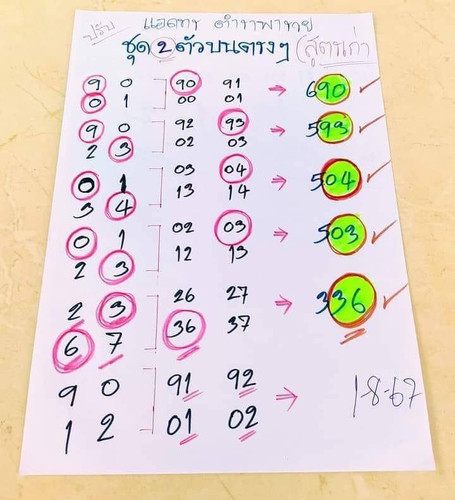 ปรับ
แอดการ ตำราพาทย
ชุด 2 ตัวบนตรงๆ (สูตรเก่า
9 0 90 91 → 690
0 1 00 01
9 0 92 93 → 593
2 3 02 03
0 1 03 04 → 504
3 4 13 14
0 1 02 03 → 503
2 3 12 13
2 3 26 27 → 336
6 7 36 37
9 0 91 92 →
1 2 01 02
1-8-67